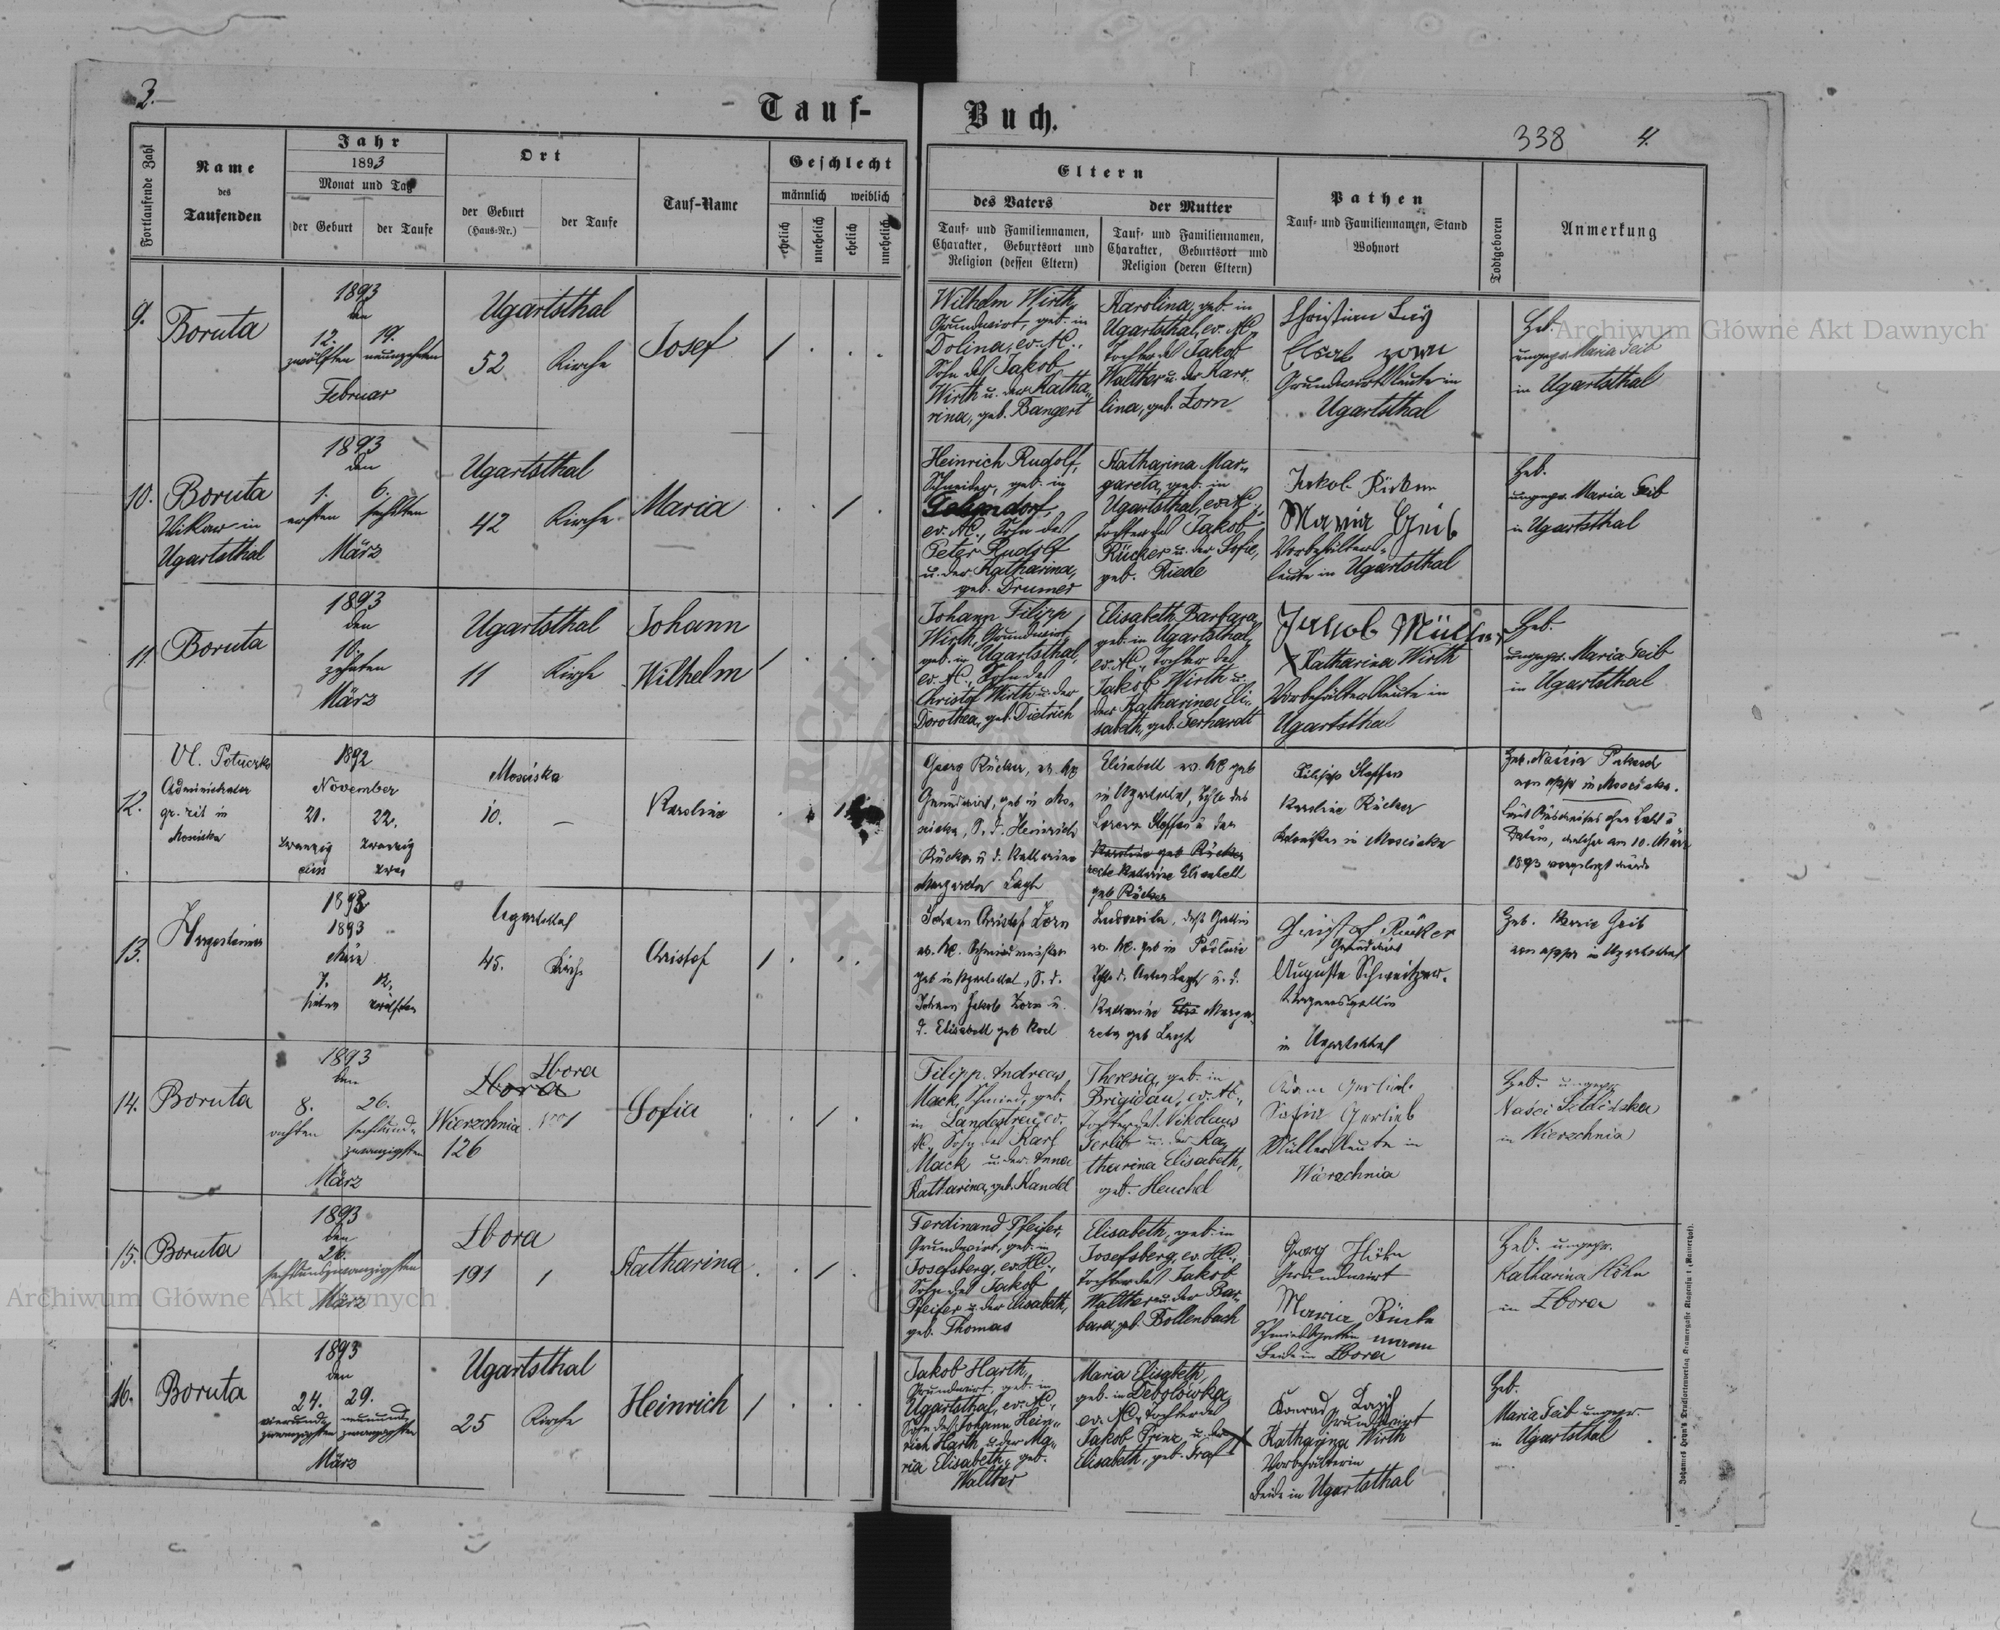 3.
Tauf-
Buch.
338
4.
Fortlaufende Zahl
Name
des
Taufenden
Jahr
1893
Monat und Tag
der Geburt
der Taufe
Ort
der Geburt
(Haus-Nr.)
der Taufe
Tauf-Name
Geschlecht
männlich
weiblich
ehelich
unehelich
ehelich
unehelich
Eltern
des Vaters
Tauf- und Familiennamen,
Charakter, Geburtsort und
Religion (dessen Eltern)
der Mutter
Tauf- und Familiennamen,
Charakter, Geburtsort und
Religion (deren Eltern)
Pathen
Tauf- und Familiennamen, Stand
Wohnort
Todtgeboren
Anmerkung
9.
Boruta
1893
den
12. 19.
zwölften neunzehnten
Februar
Ugartsthal
52 Kirche
Josef
Wilhelm Wirth,
Grundwirt, geb. in
Dolina, ev. A.C.,
Sohn des Jakob
Wirth u. der Katha-
rina, geb. Bangert
Karolina, geb. in
Ugartsthal, ev. A.C.,
Tochter des Jakob
Walther u. der Karo-
lina, geb. Zorn
Christian
Grundwirtsleute in
Ugartsthal
Heb.
ungepr. Maria Geib
in Ugartsthal
10.
Boruta
Vikar in
Ugartsthal
1893
den
1. 6.
ersten sechsten
März
Ugartsthal
42 Kirche
Maria
Heinrich Rudolf,
Schneider, geb. in
ev. A.C., Sohn des
Peter Rudolf
u. der Katharina,
geb. Drumer
Katharina Mar-
gareta, geb. in
Ugartsthal, ev. A.C.,
Tochter des Jakob
Rücker u. der Sofie,
geb. Riede
Jakob Rücker
Maria Geib
Vorbehälters-
leute in Ugartsthal
Heb.
ungepr. Maria Geib
in Ugartsthal
11.
Boruta
1893
den
10.
zehnten
März
Ugartsthal
11 Kirche
Johann
Wilhelm
Johann Filipp
Wirth, Grundwirt,
geb. in Ugartsthal,
ev. A.C., Sohn des
Christof Wirth u. der
Dorothea, geb. Dietrich
Elisabeth Barbara,
geb. in Ugartsthal,
ev. A.C., Tochter des
Jakob Wirth u.
der Katharina Eli-
sabeth, geb. Gerhardt
Jakob Müller
X Katharina Wirth
Vorbehältersleute in
Ugartsthal
Heb.
ungepr. Maria Geib
in Ugartsthal
12.
Vl. Potuczko
Administrator
gr. rit in
Mosciska
1892
November
21. 22.
zwanzig zwanzig
eins zwei
Mosciska
10. —
Karoline
Georg Rücker, ev. HC
Grundwirt, geb in Mo-
sciska, S. d. Heinrich
Rücker u d. Katharine
Margareta
Elisabeth ev. HC geb
in Ugartsthal, Tchtr des
Lorenz Steffen u der
Karoline geb Rücker
recte Katharine Elisabeth
geb Rücker
Filipp Steffen
Karoline Rücker
Kolonisten in Mosciska
in Mosciska.
1893 vorgelegt wurde
13.
1892
1893
März
7. 12.
sieben zwölften
Ugartsthal
45. Kirche
Christof
Johann Christof Zorn
ev. HC. Schmiedmeister
geb in Ugartsthal, S. d.
Johann Jakob Zorn u.
d. Elisabeth geb
Ludowika, dess Gattin
ev. HC. geb in
Katharine Marga-
reta geb
Christof Rücker
Grundwirt
Auguste Schweitzer.
in Ugartsthal
Heb. Marie Geib
von appr in Ugartsthal
14.
Boruta
1893
den
8. 26.
achten sechsund-
zwanzigsten
März
Zbora
Zbora
Wierzchnia
126
Sofia
Filipp Andreas
Mack, Schmied, geb.
in Landestreu, ev.
A.C., Sohn des Karl
Mack u. der Anna
Katharina, geb. Kandel
Theresia, geb. in
Brigidau, ev. A.C.,
Tochter des Nikolaus
Gerlib u. der Ka-
tharina Elisabeth,
geb. Heuchel
Adam Gerlieb
Sofia Gerlieb
Müllersleute in
Wierzchnia
Heb. ungepr.
in Wierzchnia
15.
Boruta
1893
den
26.
sechsundzwanzigsten
März
Zbora
191
Katharina
Ferdinand Pfeifer,
Grundwirt, geb. in
Josefsberg, ev. H.C.,
Sohn des Jakob
Pfeifer u. der Elisabeth,
geb. Thomas
Elisabeth, geb. in
Josefsberg, ev. H.C.,
Tochter des Jakob
Walther u. der Bar-
bara, geb. Bollenbach
Georg Höhn
Grundwirt
Maria
Beide in Zbora
Heb. ungepr.
Katharina Höhn
in Zbora
16.
Boruta
1893
den
24. 29.
vierund- neunund-
zwanzigsten zwanzigsten
März
Ugartsthal
25 Kirche
Heinrich
Jakob Harth,
Grundwirt, geb. in
Ugartsthal, ev. A.C.,
Sohn des Johann Hein-
rich Harth u. der Ma-
ria Elisabeth, geb.
Walther
Maria Elisabeth,
geb. in Debolówka,
ev. A.C., Tochter des
Jakob Prinz u. der
Elisabeth, geb. Graf
Konrad
Grundwirt
X Katharina Wirth
Vorbehälterin
Beide in Ugartsthal
Heb.
Maria Geib ungepr.
in Ugartsthal
Archiwum Główne Akt Dawnych
Archiwum Główne Akt Dawnych